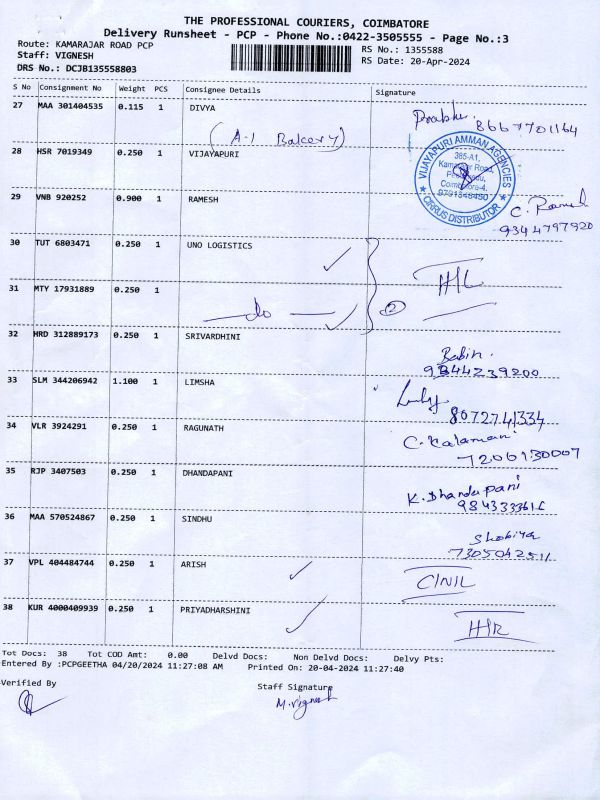 THE PROFESSIONAL COURIERS, COIMBATORE
Delivery Runsheet - PCP - Phone No.:0422-3505555 - Page No.:3
Route: KAMARAJAR ROAD PCP
RS No.: 1355588
Staff: VIGNESH
RS Date: 20-Apr-2024
DRS No.: DCJB135558803
S No Consignment No Weight PCS Consignee Details Signature
27 MAA 301404535 0.115 1 DIVYA
Prabhu
8667701164
(A-1 Bakery)
28 HSR 7019349 0.250 1 VIJAYAPURI
VIJAYAPURI AMMAN AGENCIES
385-A1,
Road,
Coimbatore-4.
CIRRUS DISTRIBUTOR
29 VNB 920252 0.900 1 RAMESH
C. Ramesh
9344797920
30 TUT 6803471 0.250 1 UNO LOGISTICS
31 MTY 17931889 0.250 1
do
2
32 HRD 312889173 0.250 1 SRIVARDHINI
Babin.
9844239200
33 SLM 344206942 1.100 1 LIMSHA
8072741334
34 VLR 3924291 0.250 1 RAGUNATH
C. Kalamani
7200130007
35 RJP 3407503 0.250 1 DHANDAPANI
K. Dhandapani
36 MAA 570524867 0.250 1 SINDHU
Shobiya
7305042511
37 VPL 404484744 0.250 1 ARISH
38 KUR 4000409939 0.250 1 PRIYADHARSHINI
Tot Docs: 38 Tot COD Amt: 0.00 Delvd Docs: Non Delvd Docs: Delvy Pts:
Entered By :PCPGEETHA 04/20/2024 11:27:08 AM Printed On: 20-04-2024 11:27:40
Verified By
Staff Signature
M. Vignesh